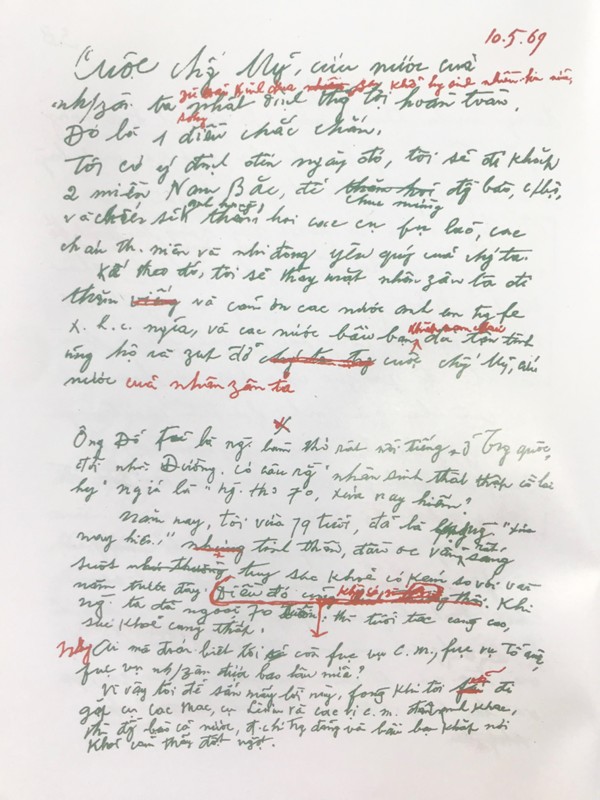 10.5.69
Cuộc chg Mỹ, cứu nước của
dù fải kinh qua khổ, hy sinh nhiều hơn nữa,
nh/zân ta nhất định thg lợi hoàn toàn,
Đó là 1 điều chắc chắn.
Tôi có ý định đến ngày đó, tôi sẽ đi khắp
2 miền Nam Bắc, để chúc mừng đg bào, c/bộ,
và chiến sĩ anh hùng, thăm hỏi các cụ fụ lão, các
cháu th. niên và nhi đồng yêu quý của chg ta.
Kế theo đó, tôi sẽ thay mặt nhân zân ta đi
thăm và cám ơn các nước anh em tg fe
x. h. c. nghĩa, và các nước bầu bạn khắp năm châu đã tận tình
ủng hộ và zúp đỡ cuộc chg Mỹ, cứu
nước của nhân zân ta
Ông Đỗ Fủ là ng làm thơ rất nổi tiếng ở Trg quốc,
đời nhà Đường. Có câu rg "nhân sinh thất thập cổ lai
hy" nghĩa là "ng thọ 70, xưa nay hiếm".
Năm nay, tôi vừa 79 tuổi, đã là "xưa
nay hiếm" tinh thần, đầu óc vẫn rất sáng
suốt tuy sức khoẻ có kém so với vài
năm trước đây. Khi
ng ta đã ngoài 70 thì tuổi tác càng cao,
sức khoẻ càng thấp.
Nhg Ai mà đoán biết tôi còn fục vụ C.m., fục vụ Tổ quốc,
fục vụ nh/zân được bao lâu nữa?
Vì vậy tôi để sẵn mấy lời này, fòng khi tôi sẽ đi
gặp cụ Các Mác, cụ Lênin và các vị c.m. đàn anh khác,
thì đg bào cả nước, đ.chí tg đảng và bầu bạn khắp nơi
khỏi cảm thấy đột ngột.